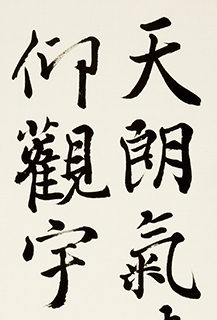 天朗氣
仰觀宇